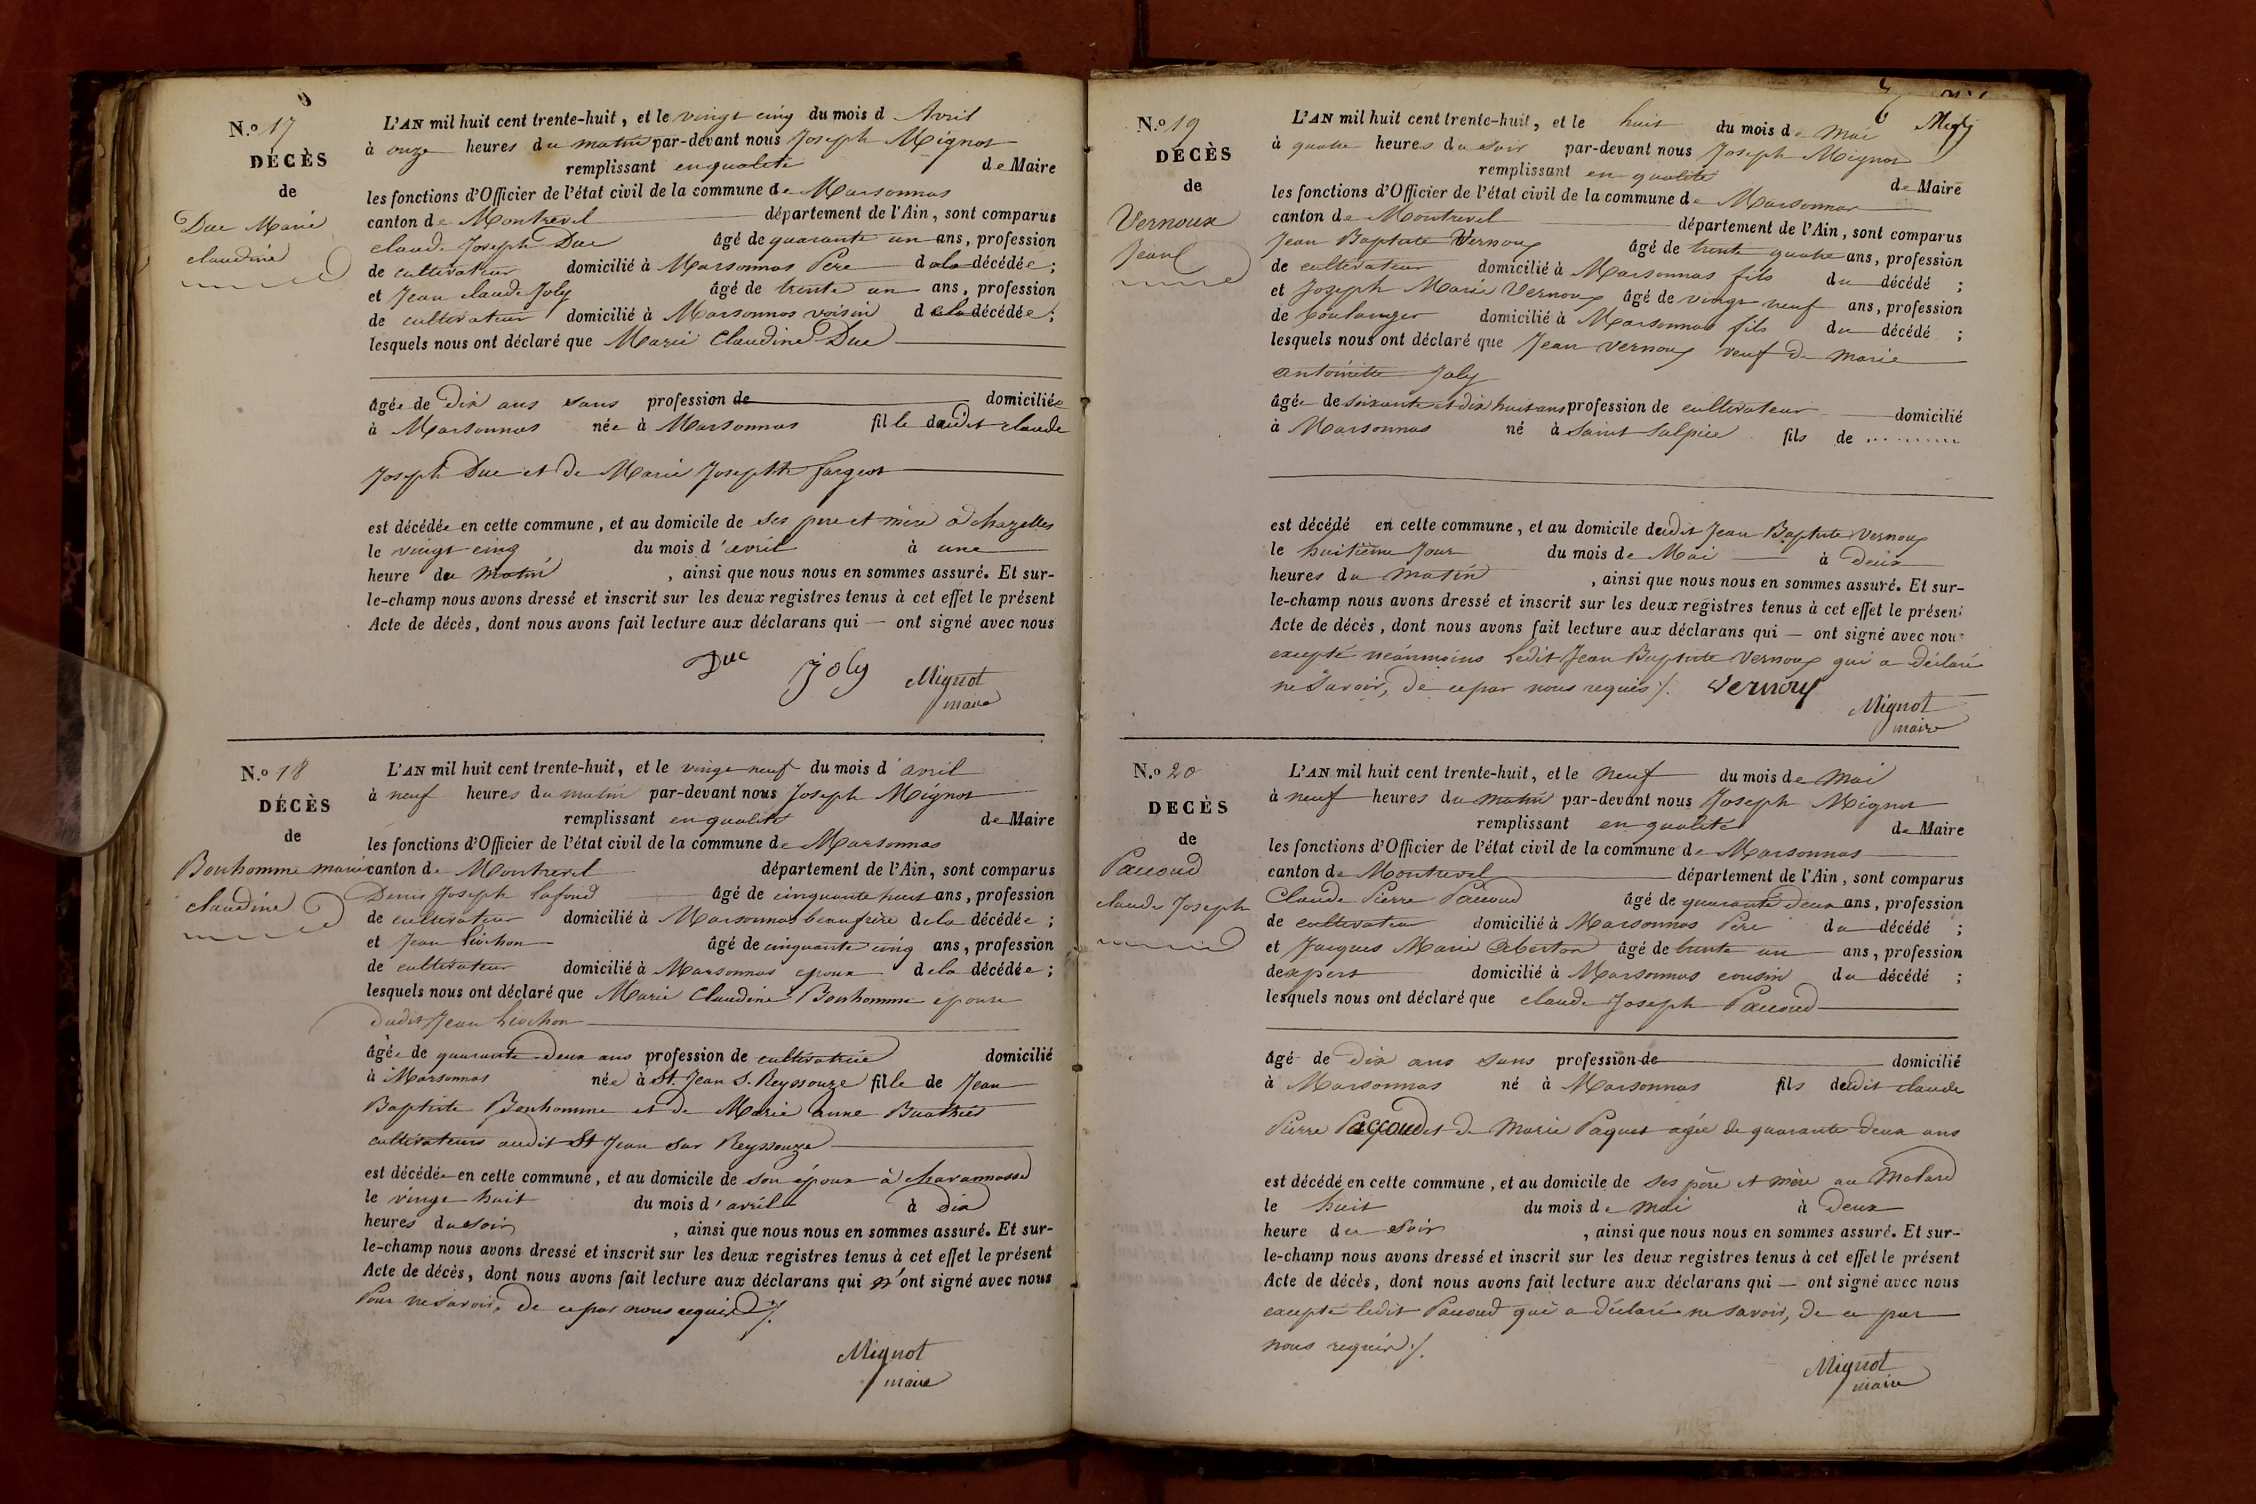 N.o 17
DÉCÈS
de
Duc Marie
claudine
L'AN mil huit cent trente-huit, et le vingt cinq du mois d Avril
à onze heures du matin par-devant nous Joseph Mignot
remplissant en qualité de Maire
les fonctions d'Officier de l'état civil de la commune de Marsonnas
canton de Montrevel département de l'Ain, sont comparus
claude Joseph Duc âgé de quarante un ans, profession
de cultivateur domicilié à Marsonnas Père de la décédée;
et Jean claude Joly âgé de trente un ans, profession
de cultivateur domicilié à Marsonnas voisin de la décédée;
lesquels nous ont déclaré que Marie Claudine Duc
âgée de Dix ans sans profession de domiciliée
à Marsonnas née à Marsonnas fille dudit claude
Joseph Duc et de Marie Josephte
est décédée en cette commune, et au domicile de ses père et mère à chazelles
le vingt cinq du mois d'avril à une
heure du matin, ainsi que nous nous en sommes assuré. Et sur-
le-champ nous avons dressé et inscrit sur les deux registres tenus à cet effet le présent
Acte de décès, dont nous avons fait lecture aux déclarans qui — ont signé avec nous
Duc joly Mignot
maire
N.o 18
DÉCÈS
de
Bonhomme marie
claudine
L'AN mil huit cent trente-huit, et le vingt neuf du mois d'avril
à neuf heures du matin par-devant nous Joseph Mignot
remplissant en qualité de Maire
les fonctions d'Officier de l'état civil de la commune de Marsonnas
canton de Montrevel département de l'Ain, sont comparus
Denis Joseph lafond âgé de cinquante huit ans, profession
de cultivateur domicilié à Marsonnas beaufrère de la décédée;
et Jean Liochon âgé de cinquante cinq ans, profession
de cultivateur domicilié à Marsonnas époux de la décédée;
lesquels nous ont déclaré que Marie Claudine Bonhomme épouse
dudit Jean Liochon
âgée de quarante-deux ans profession de cultivatrice domicilié
à Marsonnas née à St. Jean S. Reyssouze fille de Jean
Baptiste Bonhomme et de Marie anne Buathier
cultivateurs audit St Jean sur Reyssouze
est décédée en cette commune, et au domicile de son époux à
le vingt huit du mois d'avril à dix
heures du soir, ainsi que nous nous en sommes assuré. Et sur-
le-champ nous avons dressé et inscrit sur les deux registres tenus à cet effet le présent
Acte de décès, dont nous avons fait lecture aux déclarans qui n'ont signé avec nous
Pour ne savoir, de ce par nous requis ./.
Mignot
maire
N.o 19
DÉCÈS
de
Vernoux
Jean
L'AN mil huit cent trente-huit, et le huit du mois de Mai
à quatre heures du soir par-devant nous Joseph Mignot
remplissant en qualité de Maire
les fonctions d'Officier de l'état civil de la commune de Marsonnas
canton de Montrevel département de l'Ain, sont comparus
Jean Baptiste Vernoux âgé de trente quatre ans, profession
de cultivateur domicilié à Marsonnas fils du décédé;
et Joseph Marie Vernoux âgé de vingt neuf ans, profession
de boulanger domicilié à Marsonnas fils du décédé;
lesquels nous ont déclaré que Jean Vernoux veuf de marie
antoinette Joly
âgé de soixante et dix huit ans profession de cultivateur domicilié
à Marsonnas né à Saint Sulpice fils de ..........
est décédé en cette commune, et au domicile dudit Jean Baptiste Vernoux
le huitième Jour du mois de Mai à Deux
heures du matin, ainsi que nous nous en sommes assuré. Et sur-
le-champ nous avons dressé et inscrit sur les deux registres tenus à cet effet le présent
Acte de décès, dont nous avons fait lecture aux déclarans qui — ont signé avec nous
excepté néanmoins ledit Jean Baptiste Vernoux qui a déclaré
ne savoir, de ce par nous requis ./. Vernoux
Mignot
maire
N.o 20
DÉCÈS
de
Paccoud
claude Joseph
L'AN mil huit cent trente-huit, et le neuf du mois de Mai
à neuf heures du matin par-devant nous Joseph Mignot
remplissant en qualité de Maire
les fonctions d'Officier de l'état civil de la commune de Marsonnas
canton de Montrevel département de l'Ain, sont comparus
Claude Pierre Paccoud âgé de quarante deux ans, profession
de cultivateur domicilié à Marsonnas Père du décédé;
et Jacques Marie âgé de trente un ans, profession
d'expert domicilié à Marsonnas cousin du décédé;
lesquels nous ont déclaré que claude Joseph Paccoud
âgé de Dix ans sans profession de domicilié
à Marsonnas né à Marsonnas fils dudit claude
Pierre Paccoud et de Marie Paquet agée de quarante deux ans
est décédé en cette commune, et au domicile de ses père et mère au Molard
le huit du mois de mai à Deux
heure du soir, ainsi que nous nous en sommes assuré. Et sur-
le-champ nous avons dressé et inscrit sur les deux registres tenus à cet effet le présent
Acte de décès, dont nous avons fait lecture aux déclarans qui — ont signé avec nous
excepté ledit Paccoud qui a déclaré ne savoir, de ce par
nous requis ./.
Mignot
maire